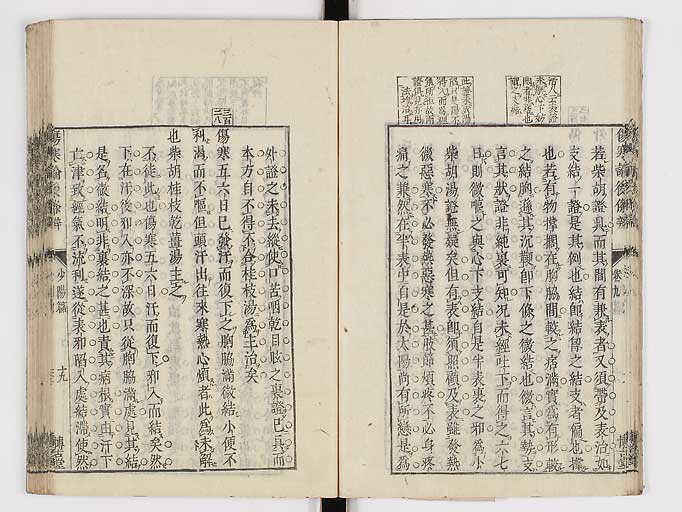 若柴胡證具而其間有兼表者又須帶及表治如
支結一證是其例也結卽結胷之結支者偏也撐
也若有物撐擱在胸脇間較之痞滿實爲有形較
之結胸遜其沉鞕卽下條之微結也微言其勢支
言其狀證非純裏可知况未經吐下而得之六七
日則微嘔之與心下支結自是半表裏之邪爲小
柴胡湯證無疑矣但有表卽須照顧及表雖發熱
微惡寒不必發熱惡寒之甚肢節煩疼不必身疼
痛之兼然在半表中自是於太陽尚有所綣是爲
外證之未去縱使口苦咽乾目眩之裏證已具而
本方自不得不合桂枝湯爲主治矣
傷寒五六日已發汗而復下之胸脇滿微結小便不
利渴而不嘔但頭汗出往來寒熱心煩者此爲未解
也柴胡桂枝乾薑湯主之
不徒此也傷寒五六日汗而復下邪入而結矣然
下在汗後邪入亦不深故只從胸脇滿處見其結
是爲微結明非裏結之甚也責其病根實由汗下
亡津致經氣不流利遂從表邪陷入處結滯使然
傷寒論後條辨
少陽篇
十九